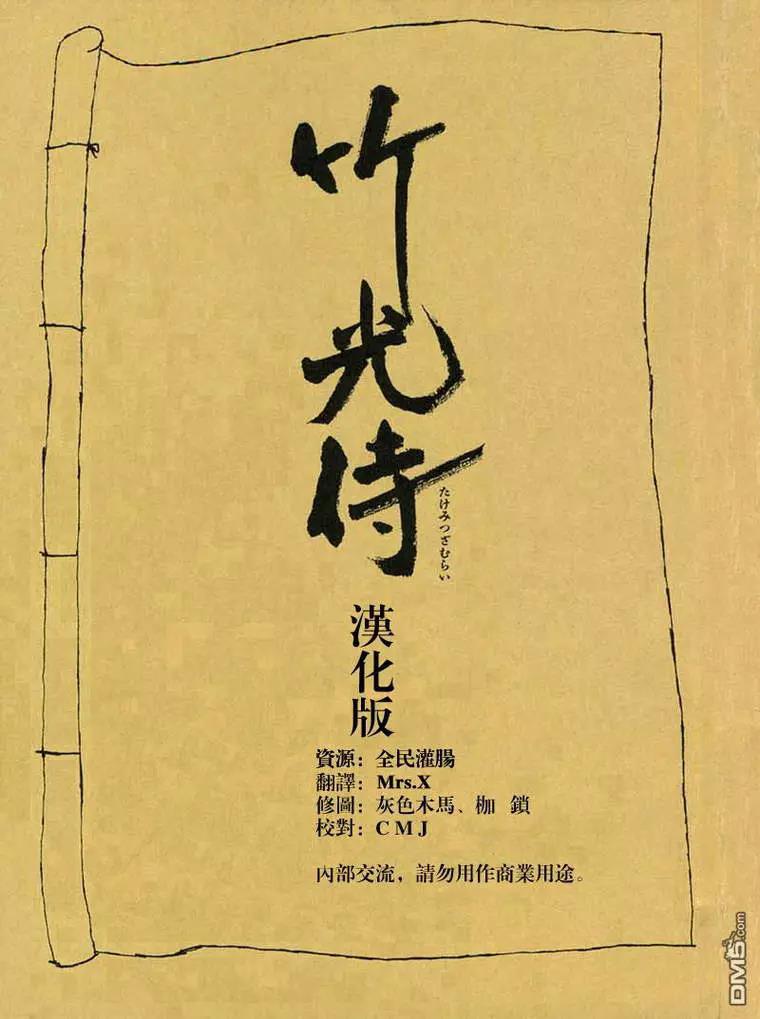 竹光侍
たけみつざむらい
漢化版
資源：全民灌腸
翻譯：Mrs.X
修圖：灰色木馬、枷 鎖
校對：C M J
內部交流，請勿用作商業用途。
DM5.com